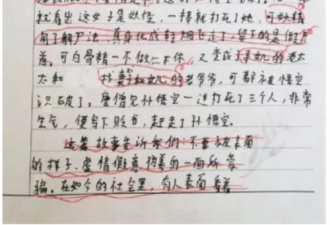 就看出这女子是妖怪,一棒就打了她,可妖精
用了解尸法,真身化成轻烟逃走了,留下的是假尸
首,可白骨精一不做二不休,又变成了女儿的老太
太和 找妻子和女儿的老爷爷,可都被悟空
识破了。唐僧见孙悟空一连打死了三个人,非常
生气,便写下贬书,赶走了孙悟空。
这篇故事告诉我们:不要被表面
的样子、虚情假意伪善的一面所蒙
骗。在如今的社会里,有人表面看着